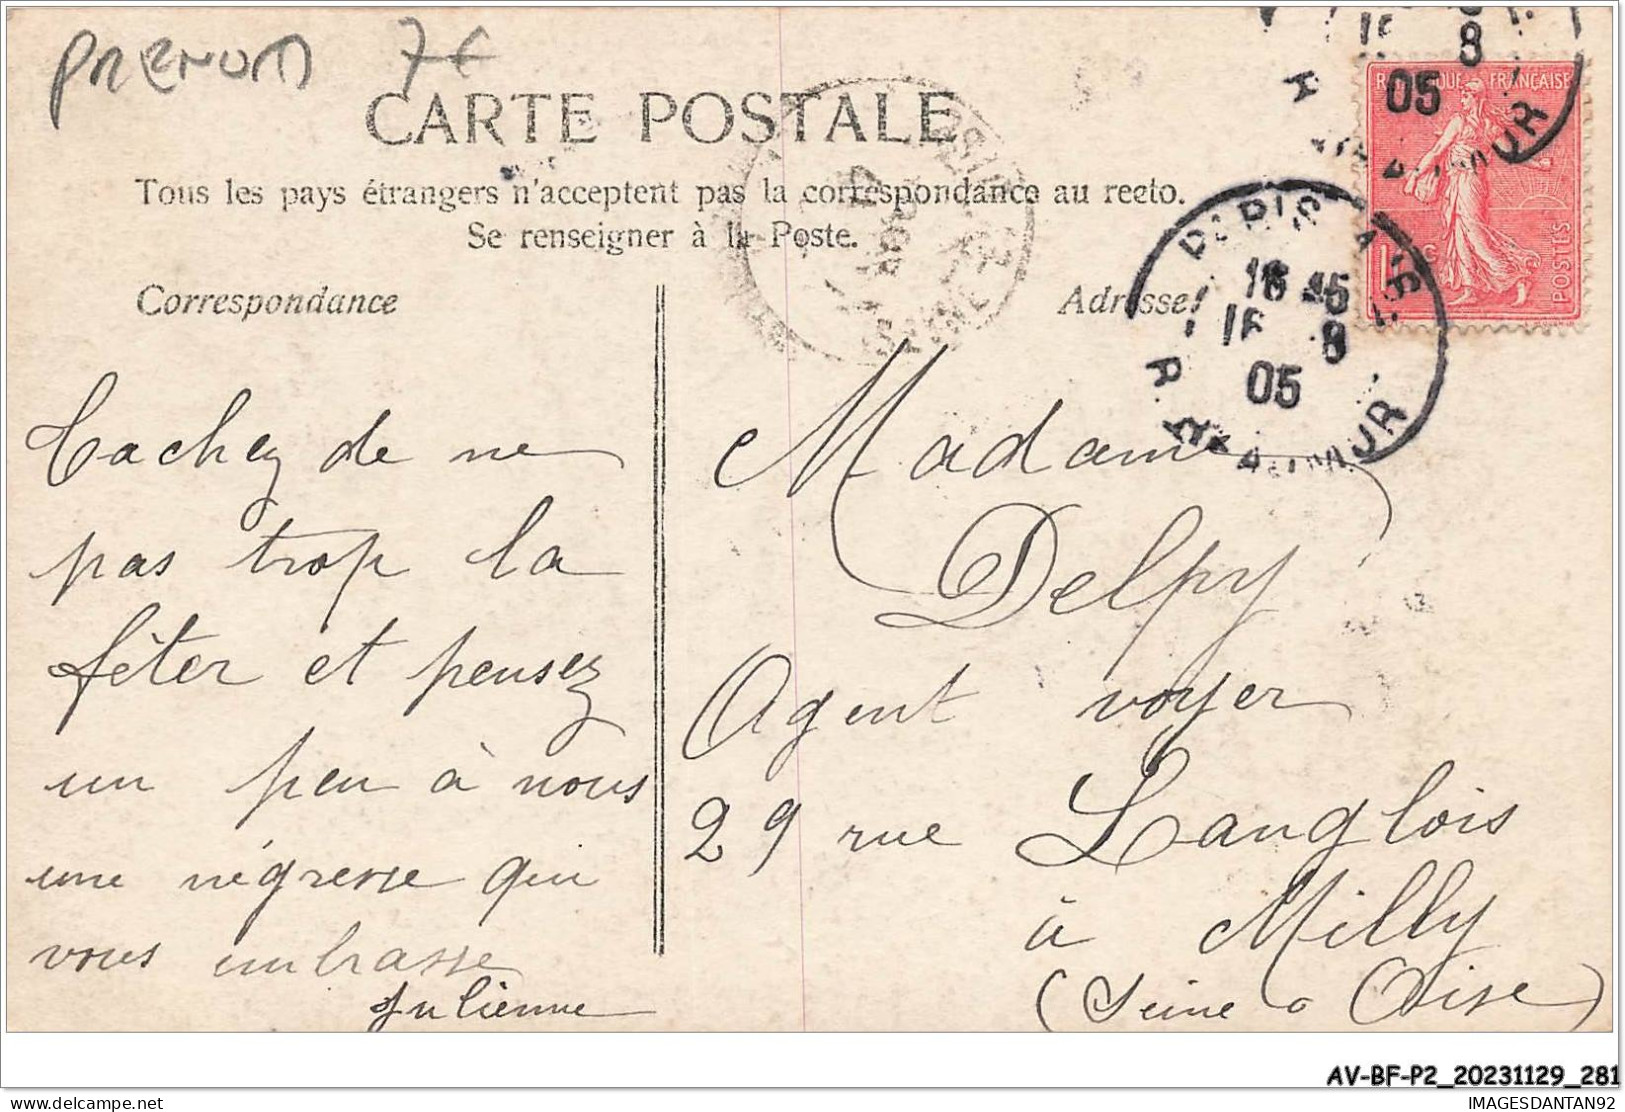 PRENOM 7€
CARTE POSTALE
Tous les pays étrangers n'acceptent pas la correspondance au recto.
Se renseigner à la Poste.
Correspondance
Adresse
REPUBLIQUE FRANÇAISE
POSTES
8
05
PARIS
16 45
16 8
05
R. RÉAUMUR
Tachez de ne
pas trop la
fêter et pensez
un peu à nous
une négresse qui
vous embrasse
Julienne
Madame
Delpy
Agent voyer
29 rue Langlois
à Milly
(Seine & Oise)
AV-BF-P2_20231129_281
delcampe.net
IMAGESDANTAN92